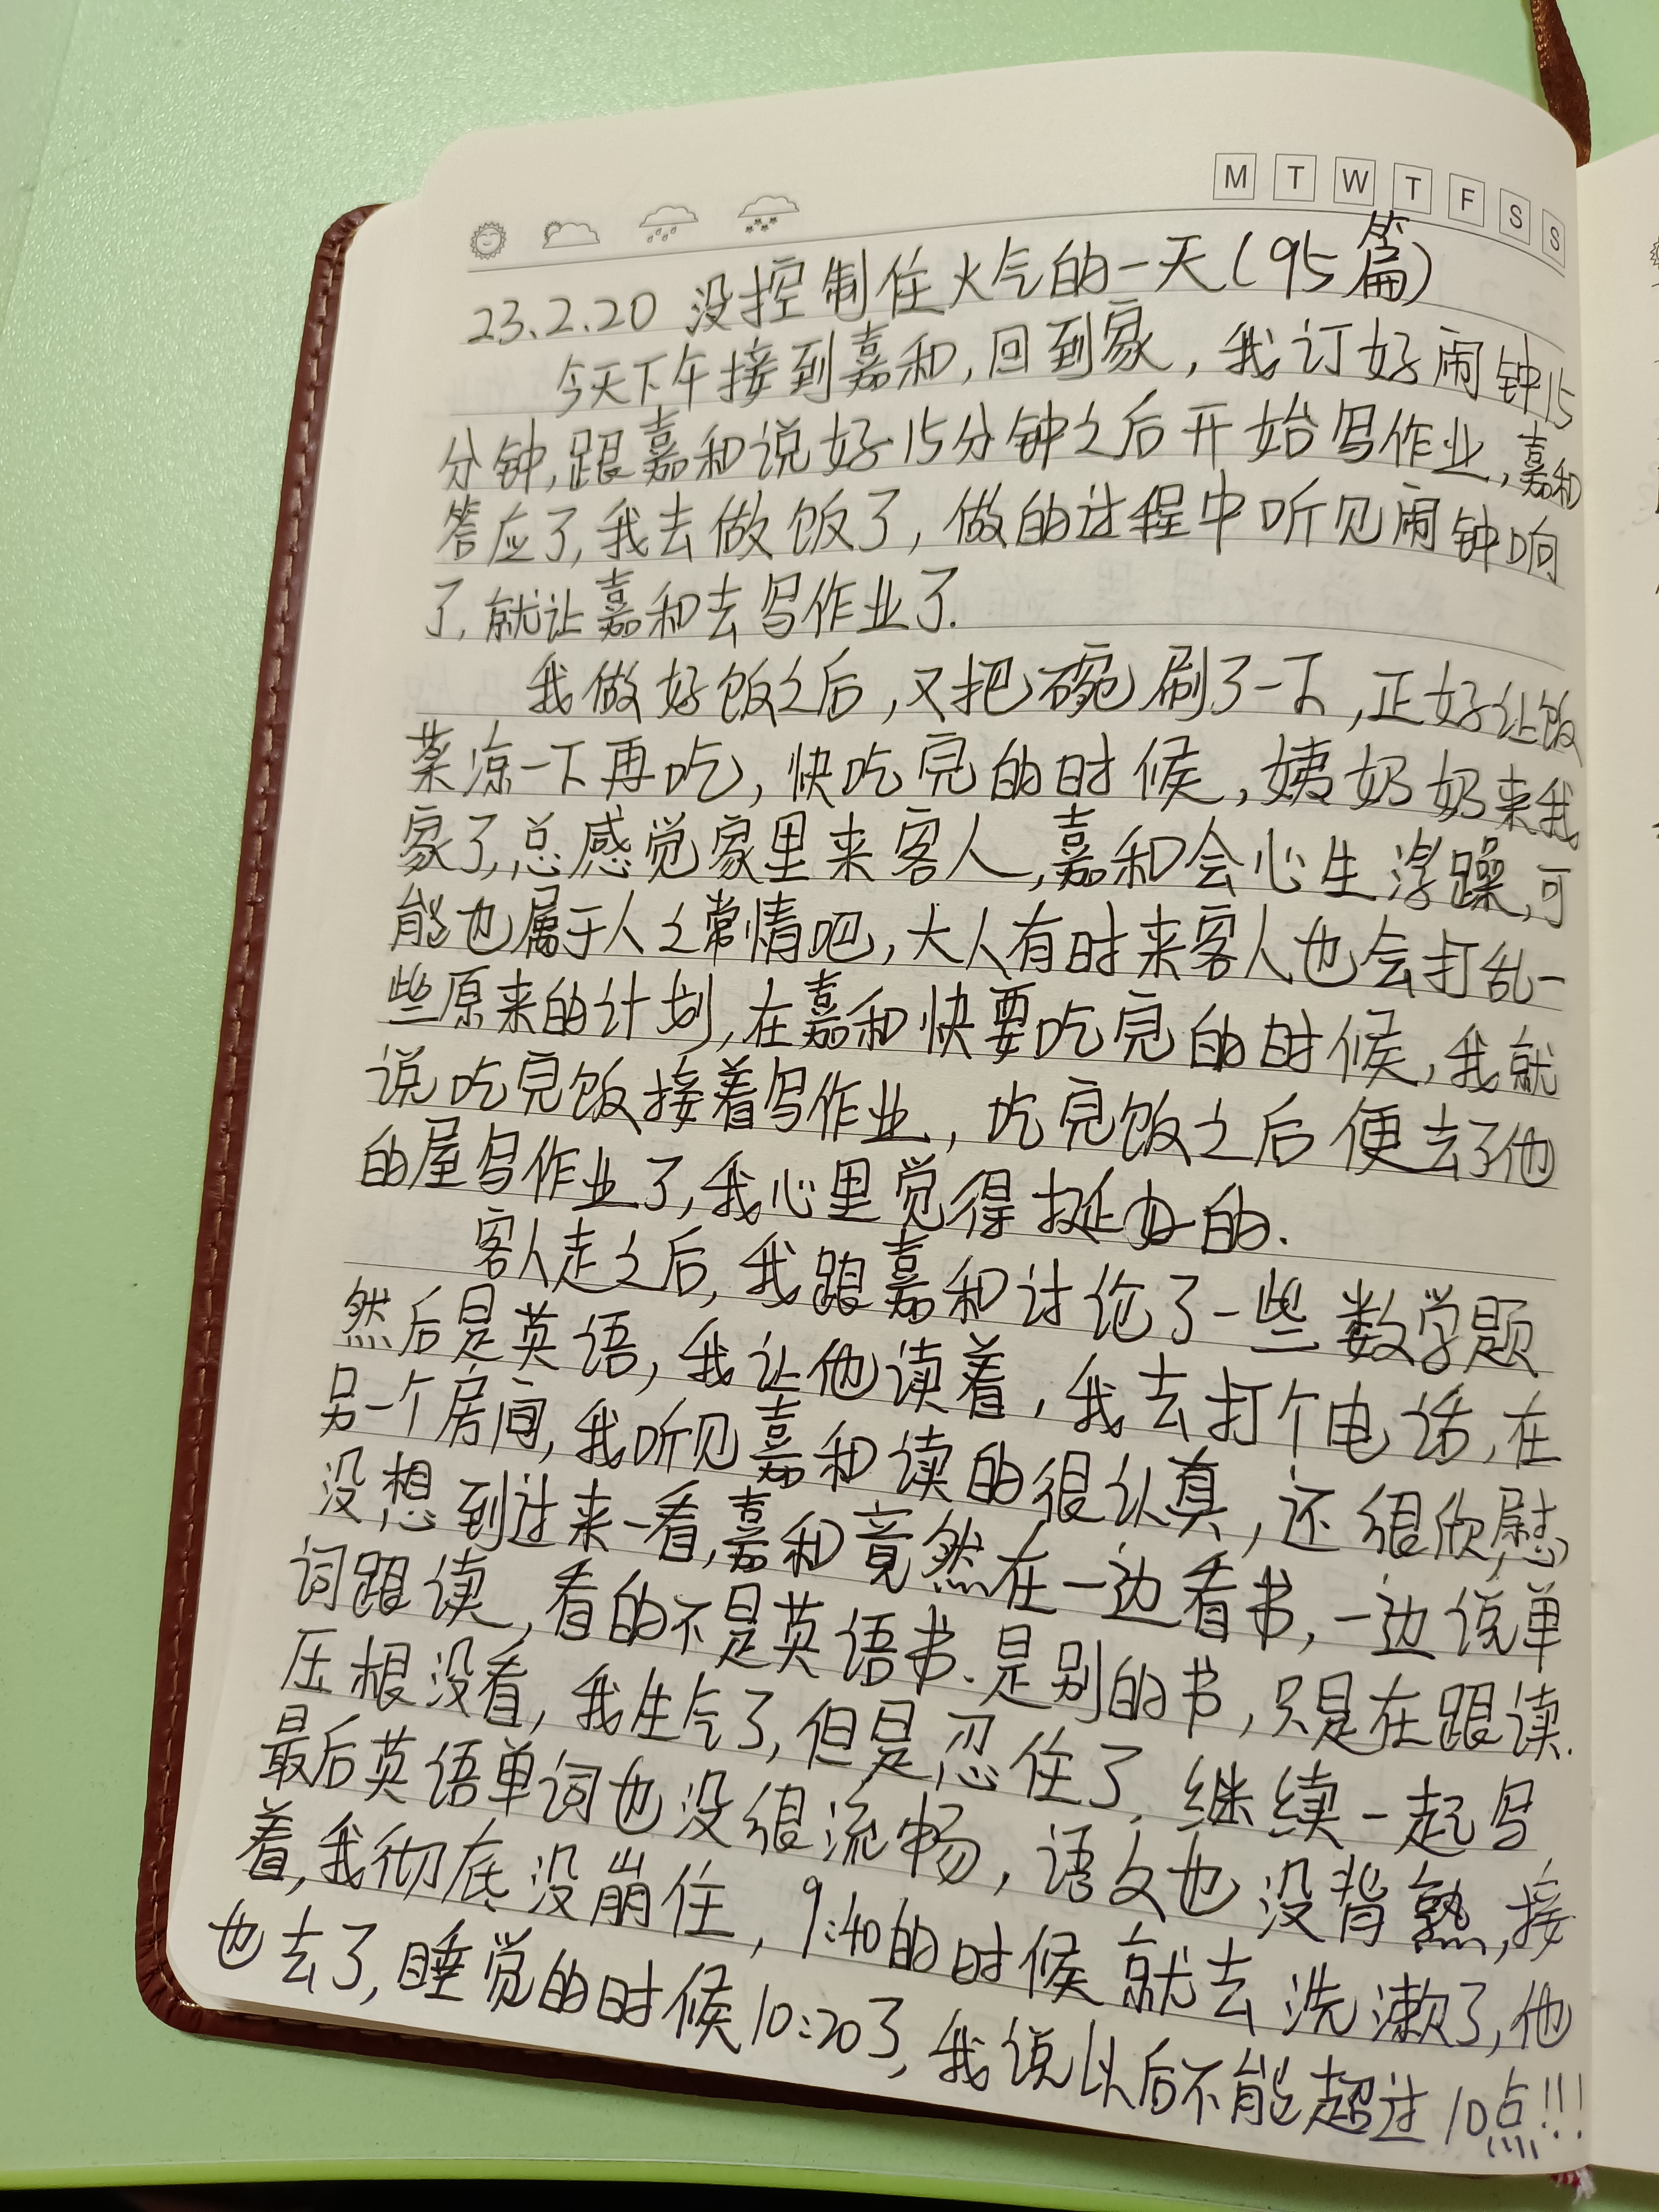 M T W T F S S
23.2.20 没控制住火气的一天(95篇)
今天下午接到嘉和,回到家,我订好闹钟15
分钟,跟嘉和说好15分钟之后开始写作业,嘉和
答应了,我去做饭了,做的过程中听见闹钟响
了,就让嘉和去写作业了.
我做好饭之后,又把碗刷了一下,正好让饭
菜凉一下再吃,快吃完的时候,姨奶奶来我
家了,总感觉家里来客人,嘉和会心生浮躁,可
能也属于人之常情吧,大人有时来客人也会打乱一
些原来的计划,在嘉和快要吃完的时候,我就
说吃完饭接着写作业,吃完饭之后便去了他
的屋写作业了,我心里觉得挺好的.
客人走之后,我跟嘉和讨论了一些数学题
然后是英语,我让他读着,我去打个电话,在
另一个房间,我听见嘉和读的很认真,还很欣慰
没想到过来一看,嘉和竟然在一边看书,一边说单
词跟读,看的不是英语书、是别的书,只是在跟读.
压根没看,我生气了,但是忍住了,继续一起写
最后英语单词也没很流畅,语文也没背熟,接
着,我彻底没崩住,9:40的时候就去洗漱了,他
也去了,睡觉的时候10:20了,我说以后不能超过10点!!!